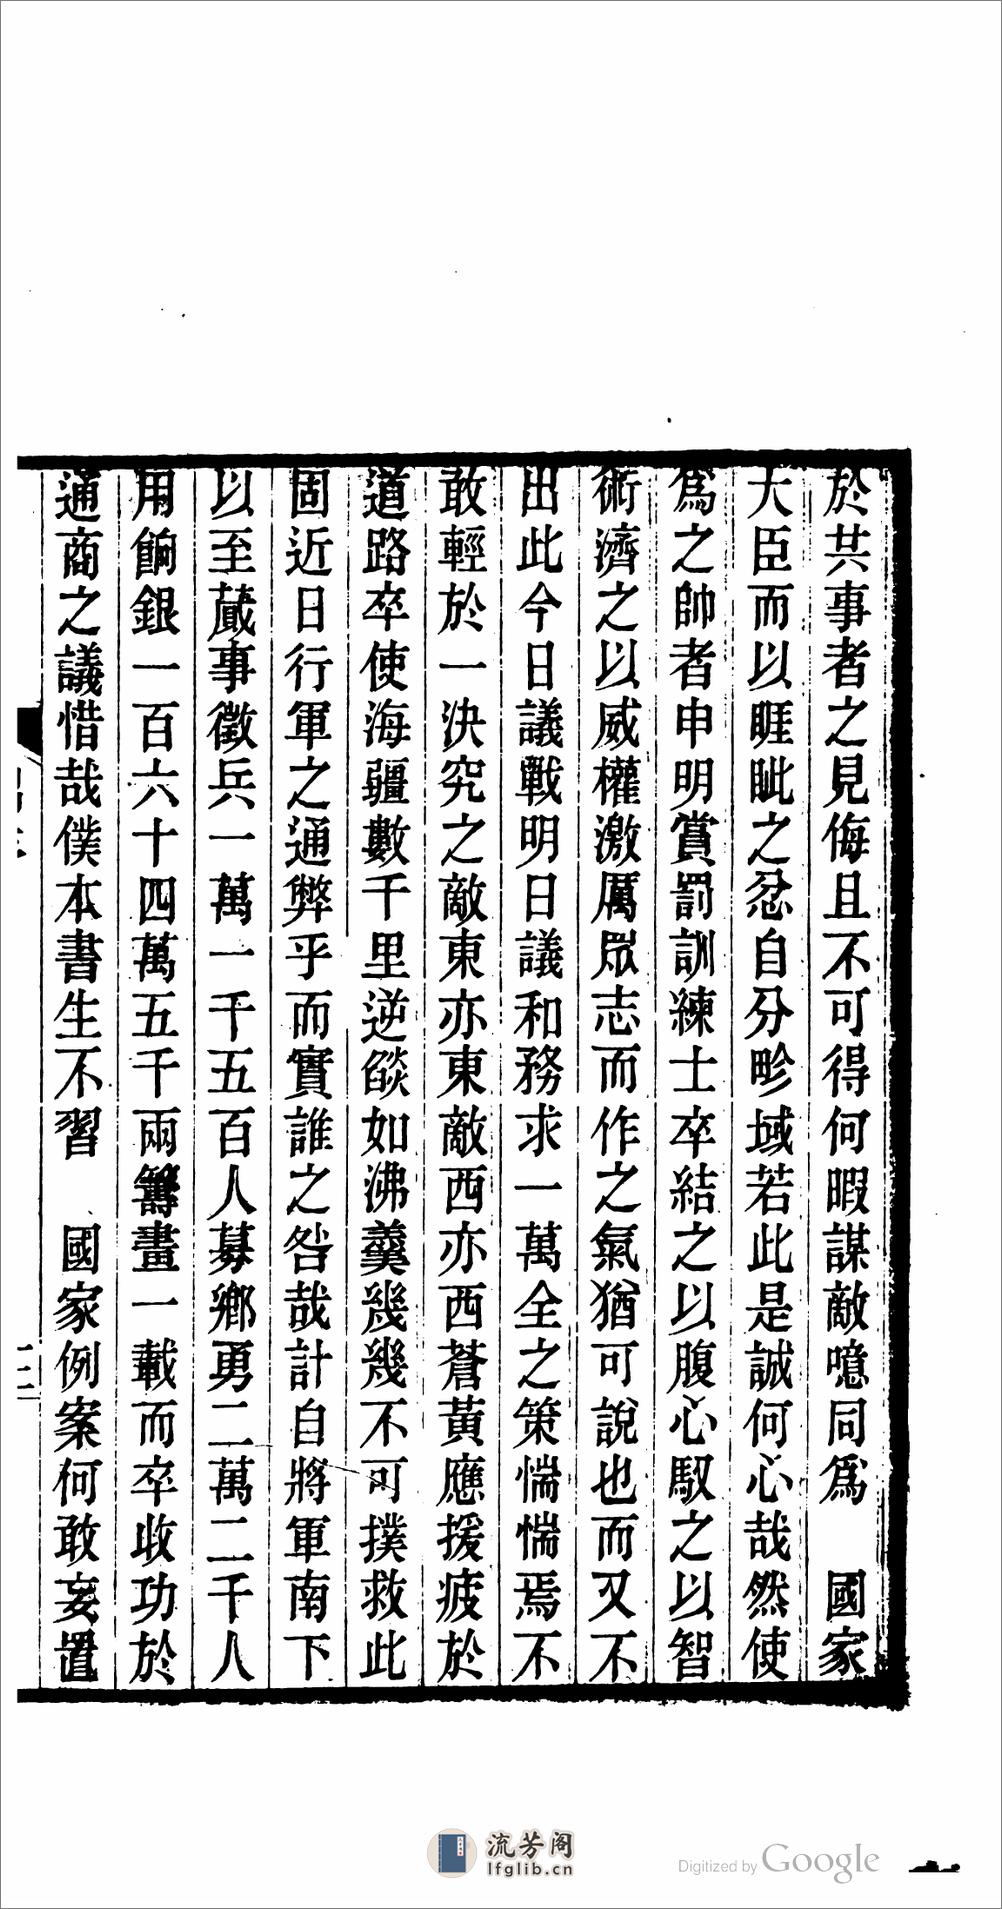 於共事者之見侮且不可得何暇謀敵噫同爲　國家
大臣而以睚眦之忿自分畛域若此是誠何心哉然使
爲之帥者申明賞罰訓練士卒結之以腹心馭之以智
術濟之以威權激厲眾志而作之氣猶可說也而又不
出此今日議戰明日議和務求一萬全之策惴惴焉不
敢輕於一決究之敵東亦東敵西亦西蒼黃應援疲於
道路卒使海疆數千里逆燄如沸羹幾幾不可撲救此
固近日行軍之通弊乎而實誰之咎哉計自將軍南下
以至蕆事徵兵一萬一千五百人募鄉勇二萬二千人
用餉銀一百六十四萬五千兩籌畫一載而卒收功於
通商之議惜哉僕本書生不習　國家例案何敢妄置
流芳阁
lfglib.cn
Digitized by Google